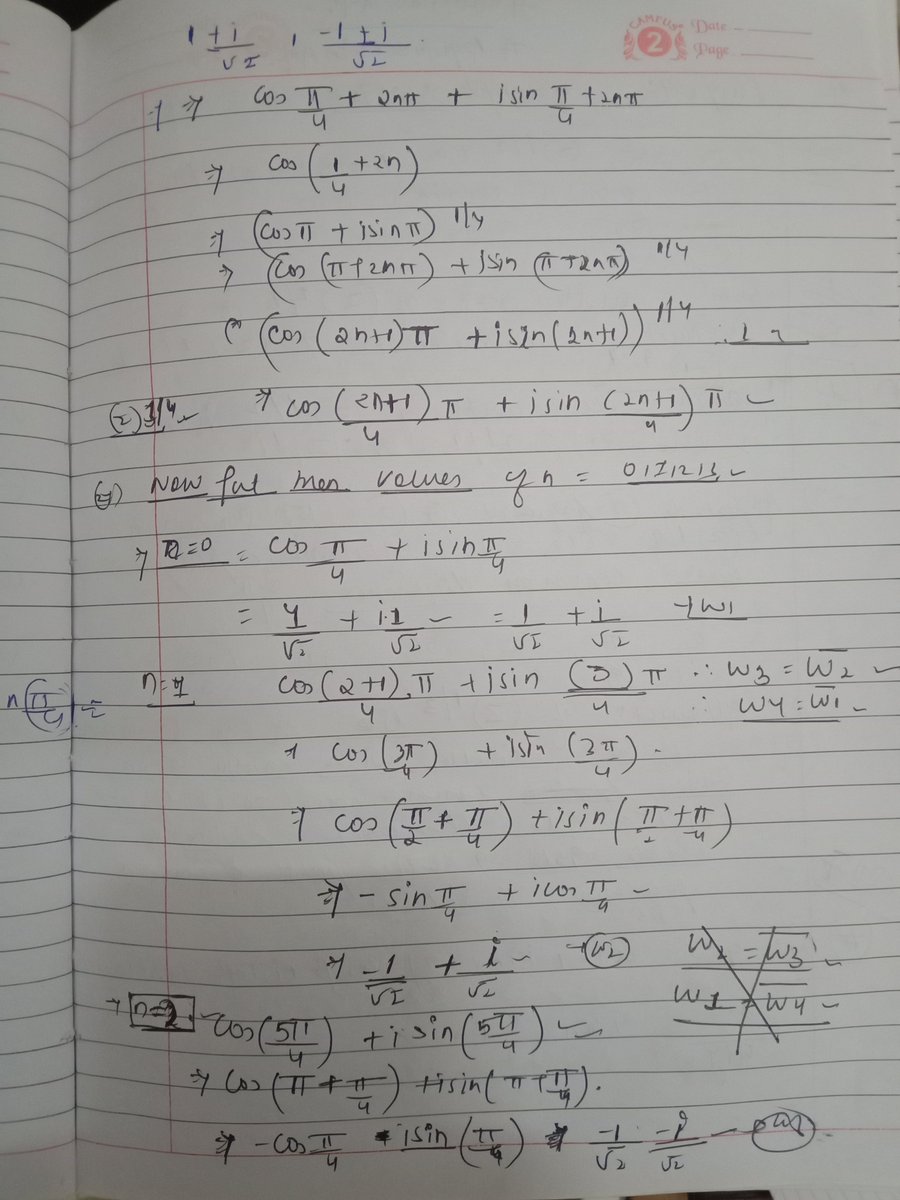 1+i/√2 , -1+i/√2
CAMPUS 2 Date
Page
⇒ cos π/4 + 2nπ + isin π/4 + 2nπ
⇒ cos (1/4 + 2n)
⇒ (cos π + isin π) 1/4
⇒ (cos (π+2nπ) + isin (π+2nπ) 1/4
(cos (2n+1)π + isin(2n+1)) 1/4
⇒ cos (2n+1)/4 π + isin (2n+1)/4 π
Now put values of n = 0,1,2,3
⇒ n=0 = cos π/4 + isin π/4
= 1/√2 + i.1/√2 = 1/√2 + i/√2 → w1
n(π/4) =
n=1 cos(2+1).π/4 + isin (3)π/4 ∴ w3 = w̅2
∴ w4 = w̅1
cos (3π/4) + isin (3π/4).
⇒ cos (π/2 + π/4) + isin (π/2 + π/4)
⇒ - sin π/4 + icos π/4
⇒ -1/√2 + i/√2 → w2
= w̅3
w1 = w̅4
→ n=2. cos(5π/4) + i sin (5π/4)
⇒ cos (π + π/4) + isin (π+π/4).
⇒ -cos π/4 - isin (π/4) ⇒ -1/√2 -i/√2